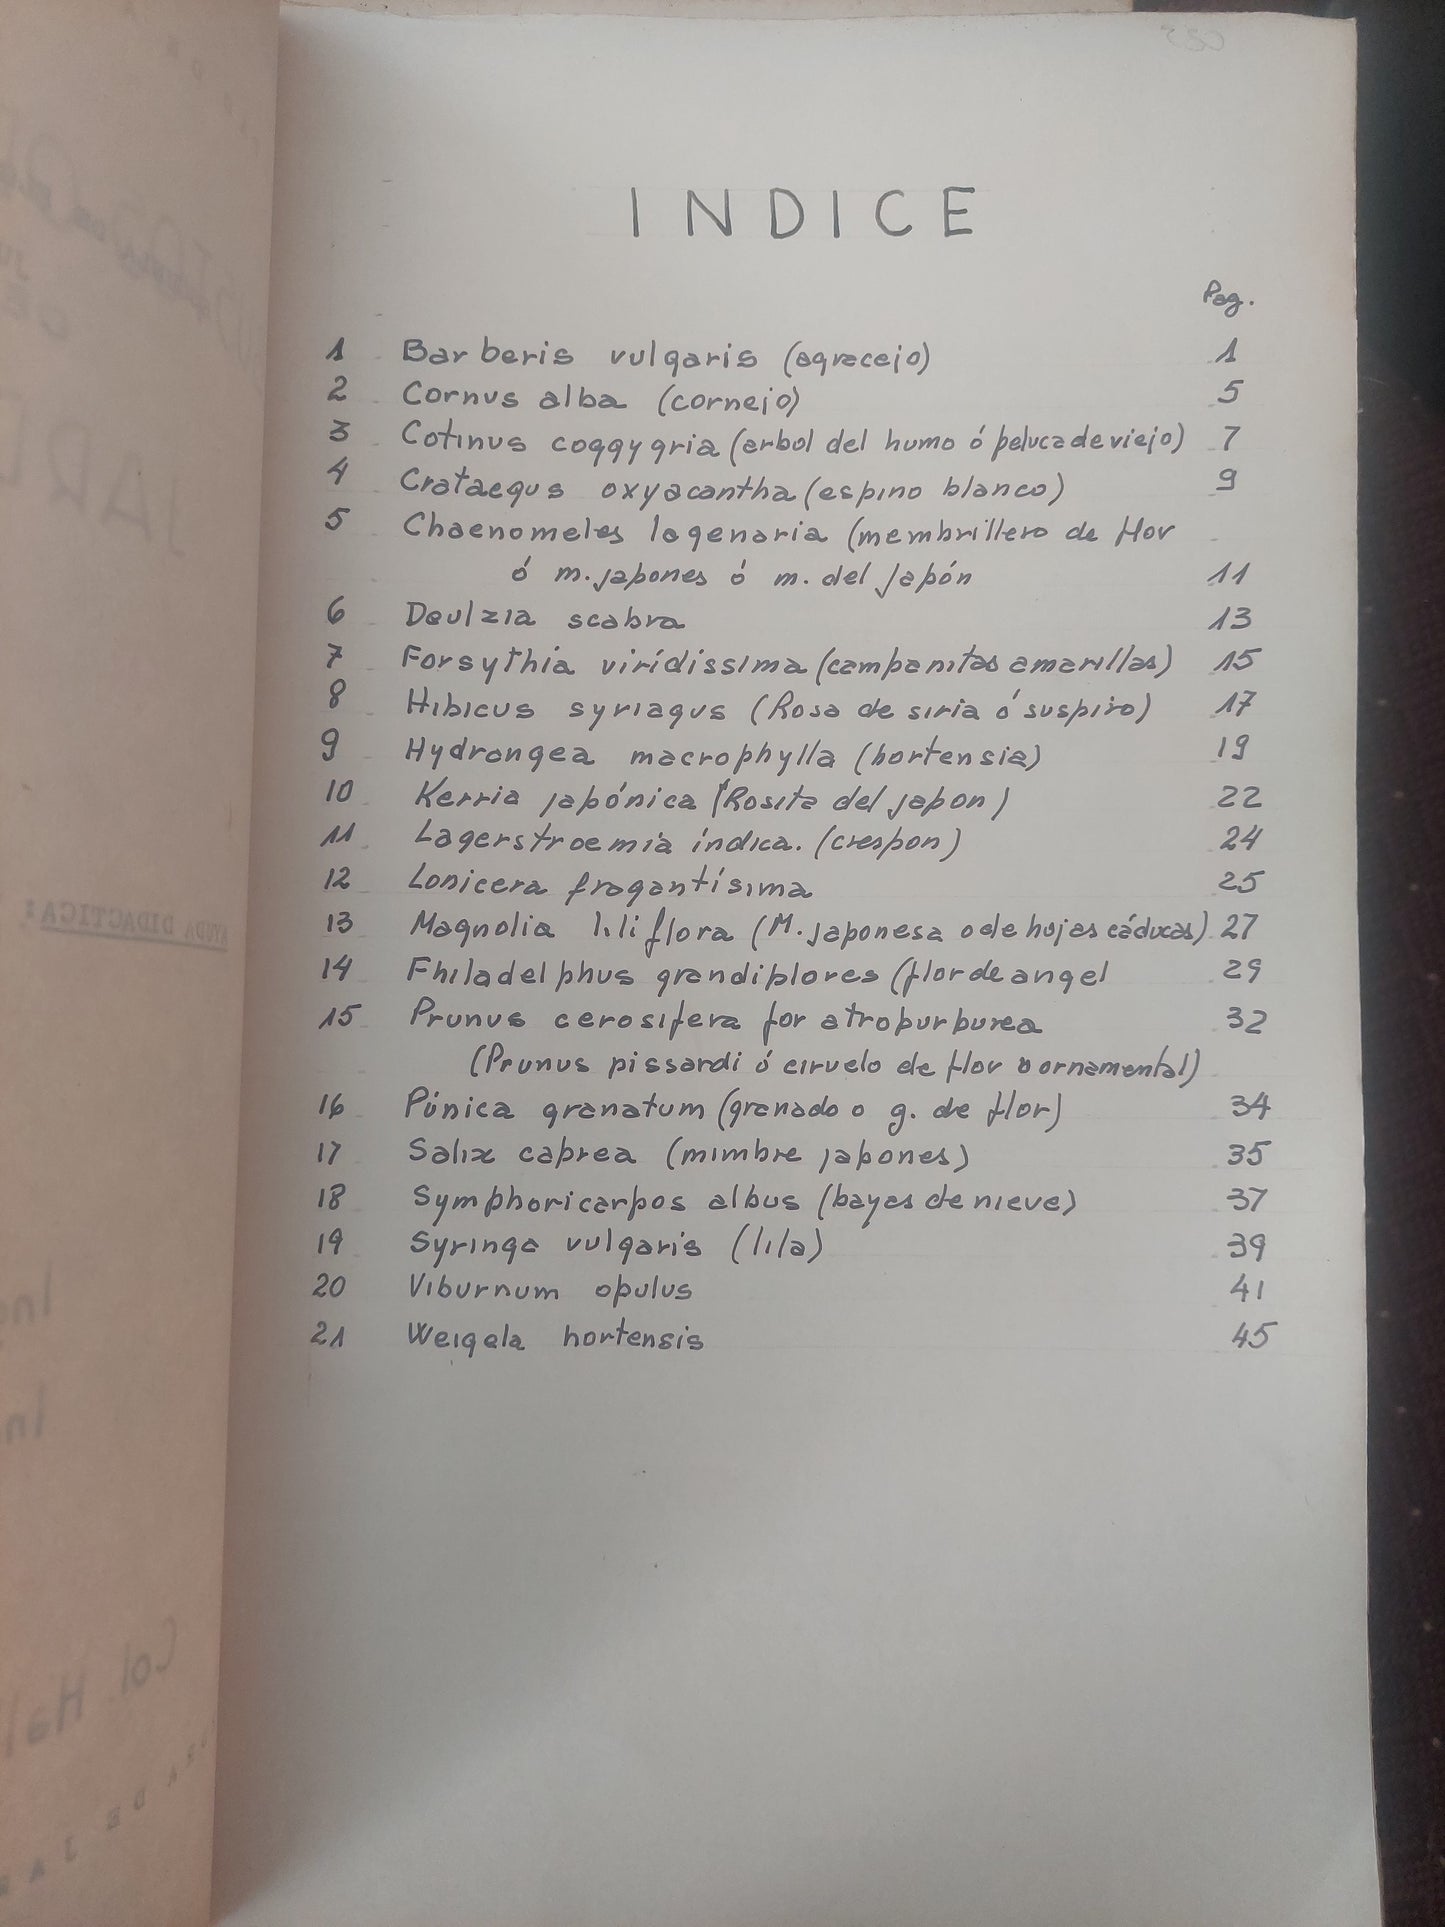 INDICE
Pag.
1 Barberis vulgaris (agracejo) 1
2 Cornus alba (cornejo) 5
3 Cotinus coggygria (arbol del humo ó peluca de viejo) 7
4 Crataegus oxyacantha (espino blanco) 9
5 Chaenomeles lagenaria (membrillero de flor
ó m. japones ó m. del Japón 11
6 Deulzia scabra 13
7 Forsythia viridissima (campanitas amarillas) 15
8 Hibicus syriagus (Rosa de siria ó suspiro) 17
9 Hydrangea macrophylla (hortensia) 19
10 Kerria japónica (Rosita del japon) 22
11 Lagerstroemia índica. (crespon) 24
12 Lonicera fragantísima 25
13 Magnolia liliflora (M. japonesa o de hojas cáducas) 27
14 Fhiladelphus grandiplores (flor de angel 29
15 Prunus cerosifera for atropurpurea 32
(Prunus pissardi ó ciruelo de flor o ornamental)
16 Púnica granatum (granado o g. de flor) 34
17 Salix caprea (mimbre japones) 35
18 Symphoricarpos albus (bayas de nieve) 37
19 Syringa vulgaris (lila) 39
20 Viburnum opulus 41
21 Weigela hortensis 45
AYUDA DIDACTICA:
Col. Hal